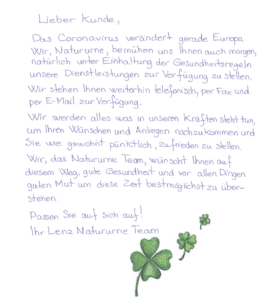 Lieber Kunde,
Das Coronavirus verändert gerade Europa
Wir, Natururne, bemühen uns Ihnen auch morgen,
natürlich unter Einhaltung der Gesundheitsregeln
unsere Dienstleistungen zur Verfügung zu stellen.
Wir stehen Ihnen weiterhin telefonisch, per Fax und
per E-Mail zur Verfügung.
Wir werden alles was in unseren Kräften steht tun,
um Ihren Wünschen und Anliegen nachzukommen und
Sie wie gewohnt pünktlich, zufrieden zu stellen.
Wir, das Natururne Team, wünscht Ihnen auf
diesem Weg, gute Gesundheit und vor allen Dingen
guten Mut um diese Zeit bestmöglichst zu über-
stehen.
Passen Sie auf sich auf!
Ihr Lenz Natururne Team